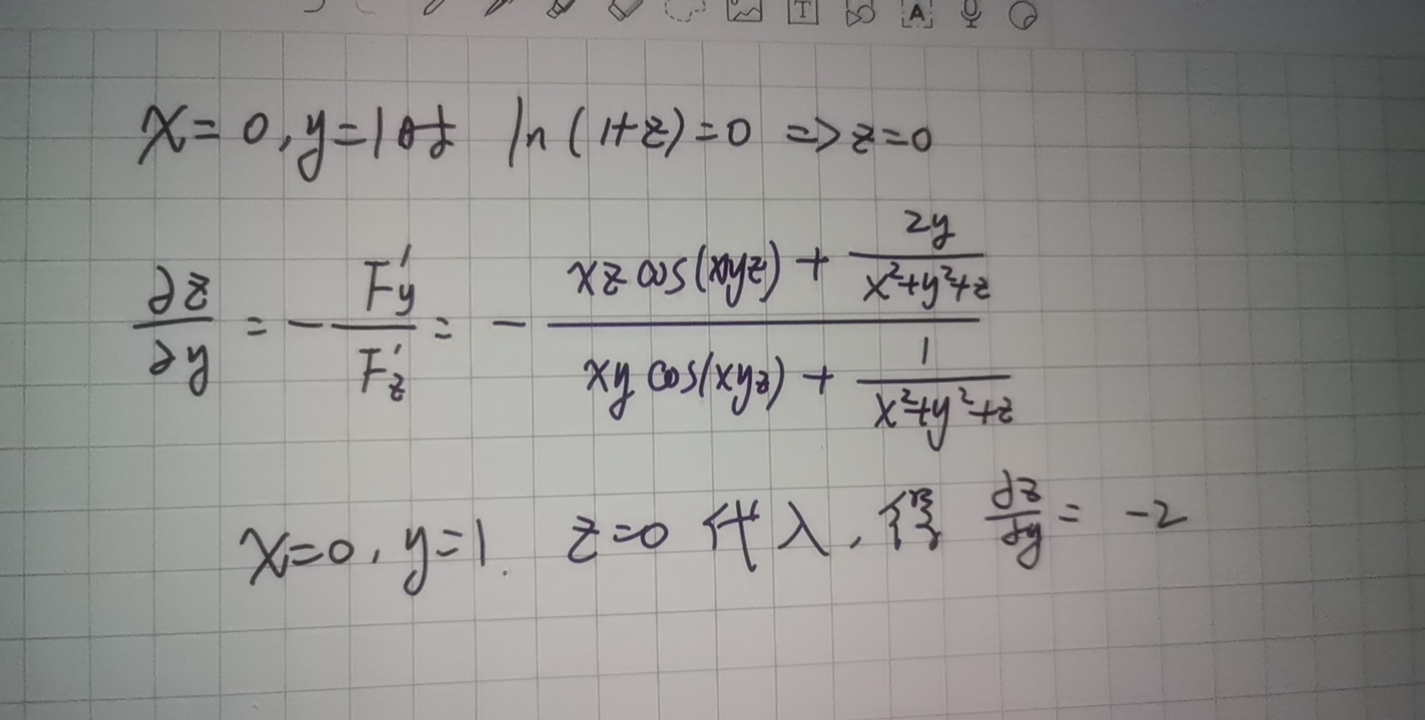 x=0,y=1时 ln(1+z)=0 => z=0
∂z/∂y = - F'y/F'z = - (xz cos(xyz) + 2y/(x²+y²+z))/(xy cos(xyz) + 1/(x²+y²+z))
x=0,y=1. z=0 代入,得 ∂z/∂y = -2